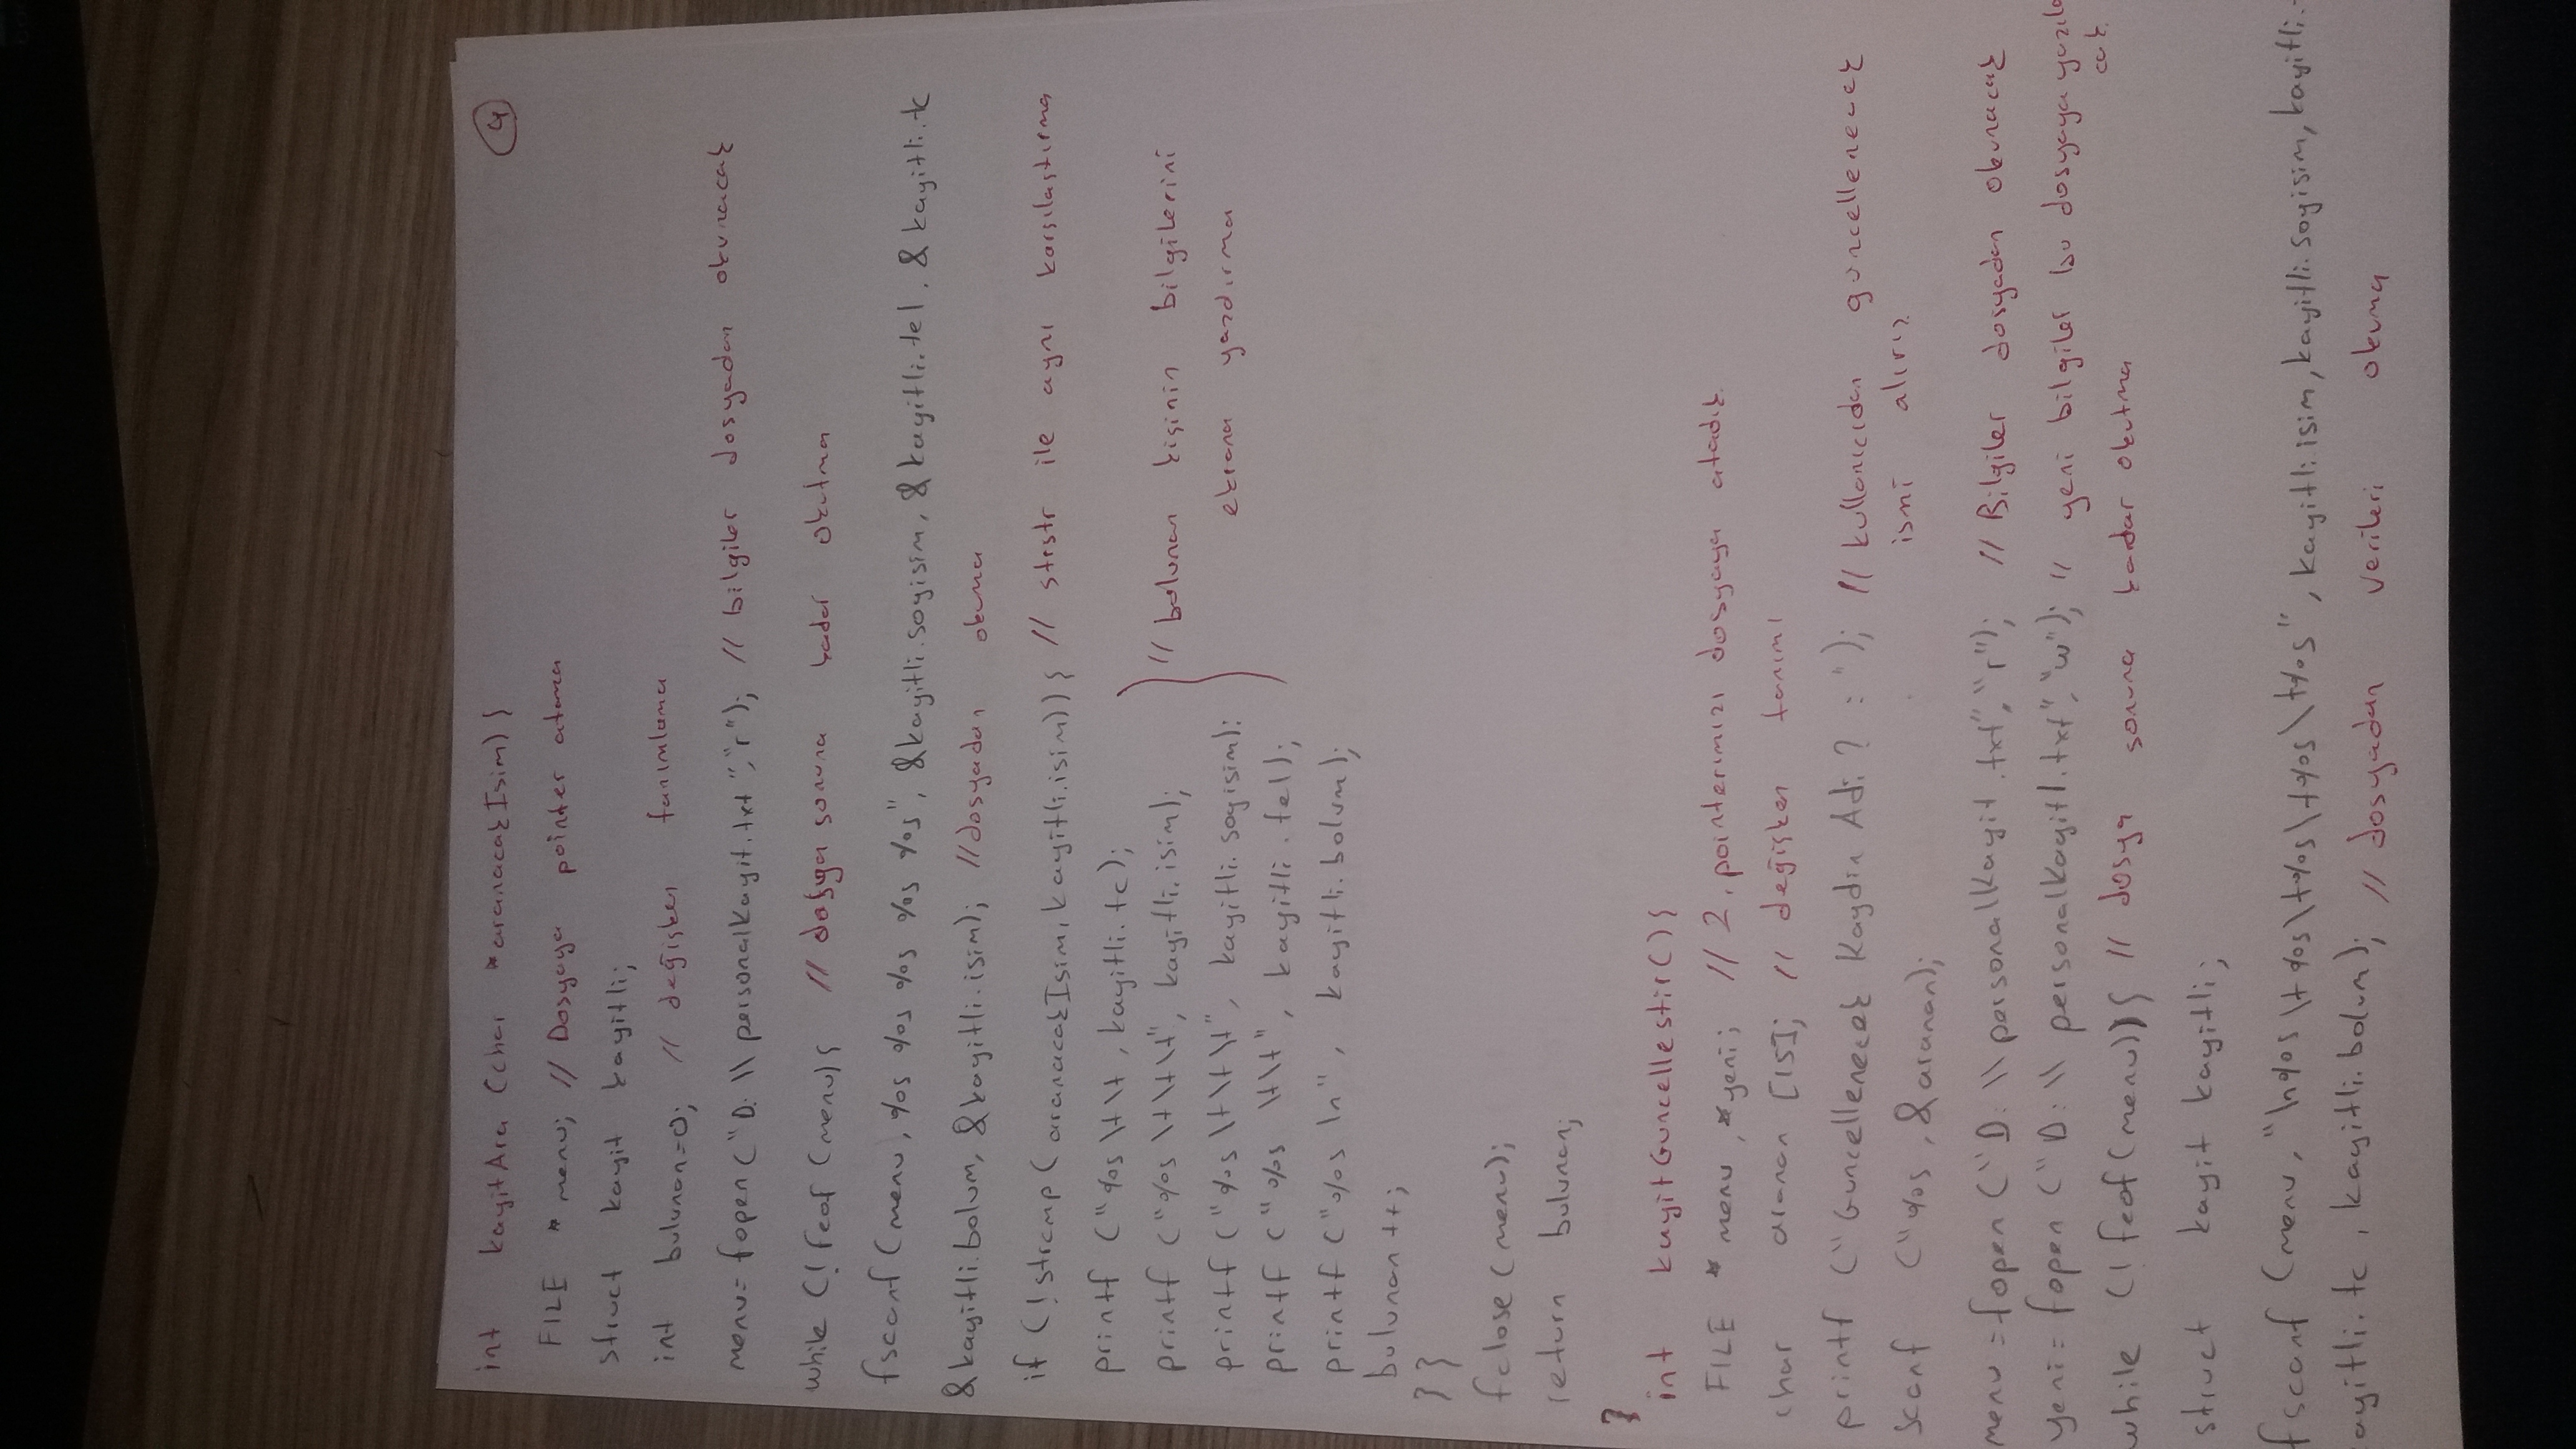 int kayitAra (char *aranacakIsim) {
4
FILE * menu; // Dosyaya pointer atama
struct kayit kayitli;
int bulunan=0; // değişken tanımlama
menu= fopen ("D:\\personalKayit.txt","r"); // bilgiler dosyadan okunacak
while (! feof (menu) { // dosya sonuna kadar okutma
fscanf (menu, %s %s %s %s %s", &kayitli.soyisim, &kayitli.tel, & kayitli.tc
&kayitli.bolum, &kayitli.isim); //dosyadan okuma
if (! strcmp ( aranacakIsim, kayitli.isim)) { // strstr ile aynı karşılaştırma
printf ("%s \t\t , kayitli.tc);
printf ("%s \t\t\t", kayitli.isim); // bulunan kişinin bilgilerini
printf ("%s \t\t\t", kayitli.soyisim); ekrana yazdırma
printf ("%s \t\t", kayitli.tel);
printf ("%s \n", kayitli.bolum);
bulunan ++;
} }
fclose (menu);
return bulunan;
}
int kayitGuncellestir() {
FILE * menu, *yeni; // 2. pointerımızı dosyaya atadık
char aranan [15]; // değişken tanımı
printf ("Guncellenecek Kaydin Adi ? : "); // kullanıcıdan güncellenecek
ismi alırız
scanf ("%s , &aranan);
menu = fopen ("D:\\personalKayit.txt","r"); // Bilgiler dosyadan okunacak
yeni= fopen ("D:\\personalKayit1.txt","w"); // yeni bilgiler bu dosyaya yazıla
cak
while (! feof(menu)) { // dosya sonuna kadar okutma
struct kayit kayitli;
fscanf (menu, "\n%s\t%s\t%s\t%s\t%s", kayitli.isim, kayitli.soyisim, kayitli.
ayitli.tc , kayitli.bolum); // dosyadan verileri okuma